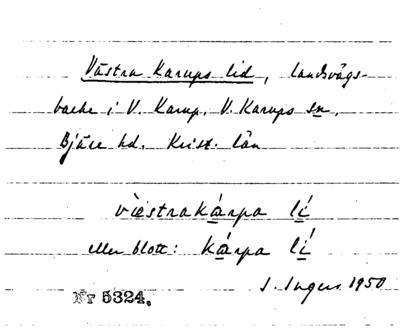 Västra Karups lid, landsvägs-
backe i V. Karup, V. Karups sn,
Bjäre hd. Krist. län
væ̀strakárpa lí
eller blott: kárpa lí
I. Ingers 1950
Nr 5324.